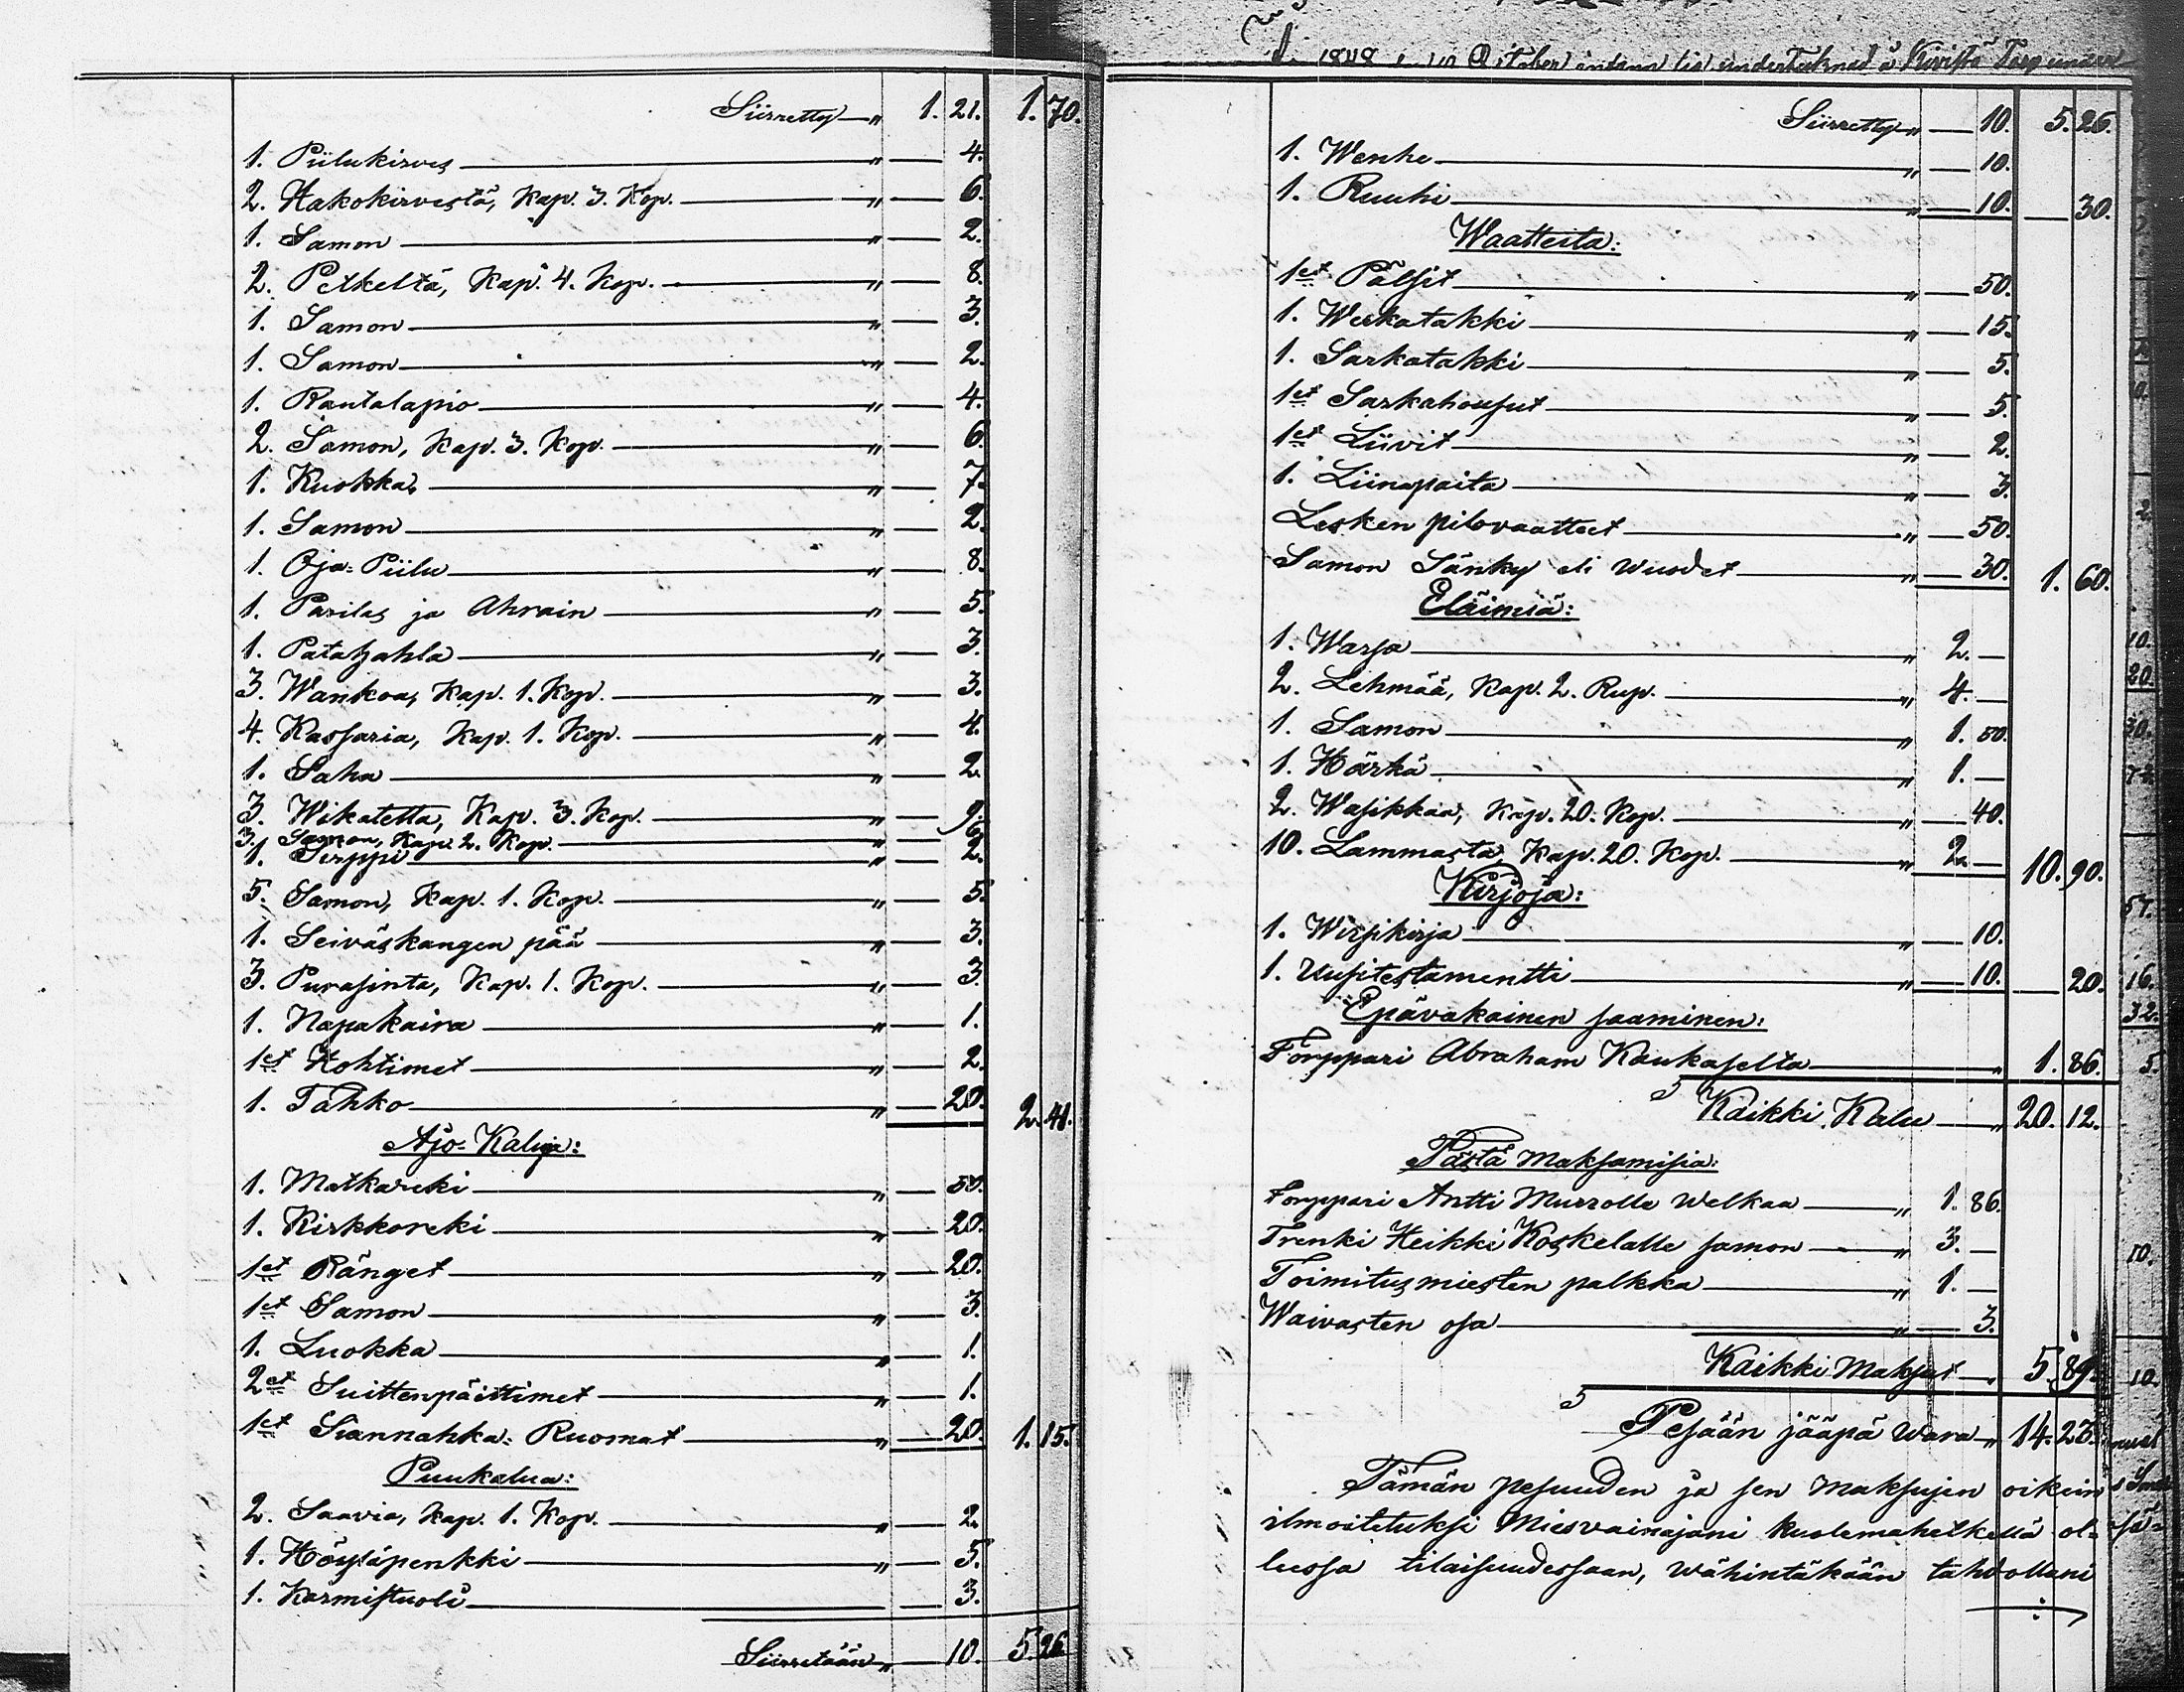 Siirretty " 1. 21. 1. 70.
1. Piilukirves " — 4.
2. Hakokirvestä, Kap. 3. Kop. " — 6.
1. Samon " — 2.
2. Petkeltä, Kap. 4. Kop. " — 8.
1. Samon " — 3.
1. Samon " — 2.
1. Rautalapio " — 4.
2. Samon, Kap. 3. Kop. " — 6.
1. Kuokka " — 7.
1. Samon " — 2.
1. Oja-Piilu " — 8.
1. Parilas ja Ahrain " — 5.
1. Patahahla " — 3.
3. Wankoa, Kap. 1. Kop. " — 3.
4. Kassaria, Kap. 1. Kop. " — 4.
1. Saha " — 2.
3. Wikatetta, Kap. 3. Kop. " — 9.
3. Samon, Kap. 2. Kop. " — 6.
1. Sirppi " — 2.
5. Samon, Kap. 1. Kop. " — 5.
1. Seiväskangen pää " — 3.
3. Purasinta, Kap. 1. Kop. " — 3.
1. Napakaira " — 1.
1et Hohtimet " — 2.
1. Tahko " — 20. 2. 41.
Ajo-Kaluja:
1. Matkareki " — 50.
1. Kirkkoreki " — 20.
1et Ränget " — 20.
1et Samon " — 3.
1. Luokka " — 1.
2et Suittenpäittimet " — 1.
1et Siannahka-Ruomat " — 20. 1. 15.
Puukalua:
2. Saavia, Kap. 1. Kop. " — 2.
1. Höyläpenkki " — 5.
1. Karmistuoli — 3.
Siirretään " — 10. 5. 26
1848 10 October undertecknad å Torp under
Siirretty " — 10. 5. 26.
1. Wenhe " — 10.
1. Ruuhi " — 10. — 30.
Waatteita:
1et Pälsit " — 50.
1. Werkatakki " — 15.
1. Sarkatakki " — 5.
1et Sarkahousut " — 5.
1et Liivit " — 2.
1. Liinapaita " — 3.
Lesken pitovaatteet " — 50.
Samon Sänky eli Wuodet " — 30. 1. 60.
Eläimiä:
1. Warsa " 2. —
2. Lehmää, Kap. 2. Rup. " 4. —
1. Samon " 1. 50.
1. Härkä " 1. —
2. Wasikkaa, Kap. 20. Kop. " — 40.
10. Lammasta, Kap. 20. Kop. " 2. — 10. 90.
Kirjoja:
1. Wirsikirja " — 10.
1. Uusitestamentti " — 10. — 20.
Epävakainen saaminen:
Torppari Abraham Kaukaselta " 1. 86.
Kaikki Kalu " 20. 12.
Tästä Maksamisia:
Torppari Antti Murrolle Welkaa " 1. 86.
Trenki Heikki Koskelalle samon " 3. —
Toimitusmiesten palkka " 1. —
Waivasten osa " — 3.
Kaikki Maksut " 5. 89.
Pesään jääpä Wara " 14. 23.
Tämän pesuuden ja sen Maksujen oikein
ilmoitetuksi Miesvainajani kuolemahetkellä ol-
lussa tilaisuudessaan, Wähintäkään tahdollani